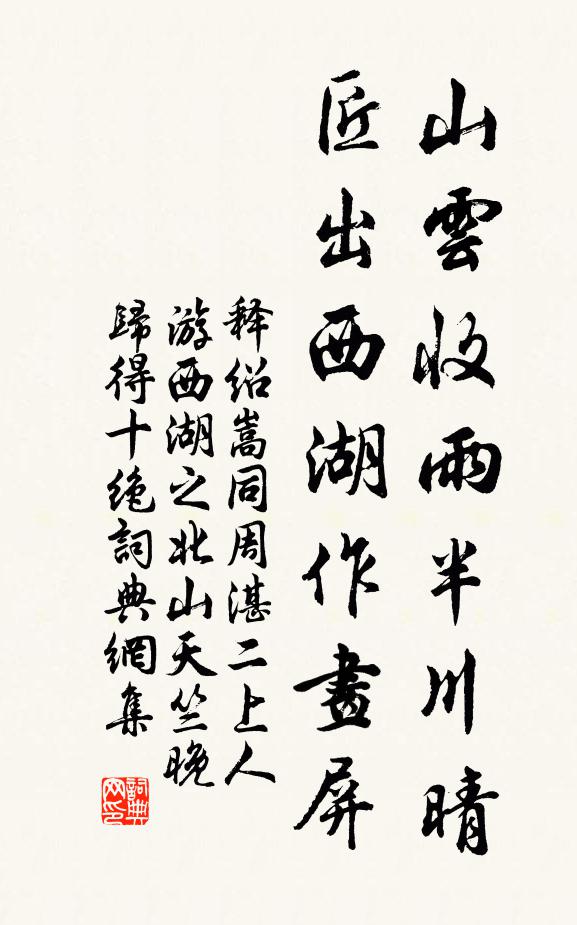 山雲收雨半川晴
匠出西湖作畫屏
释紹嵩同周湛二上人
游西湖之北山天竺晚
歸得十絶詞典網集
詞典
网印